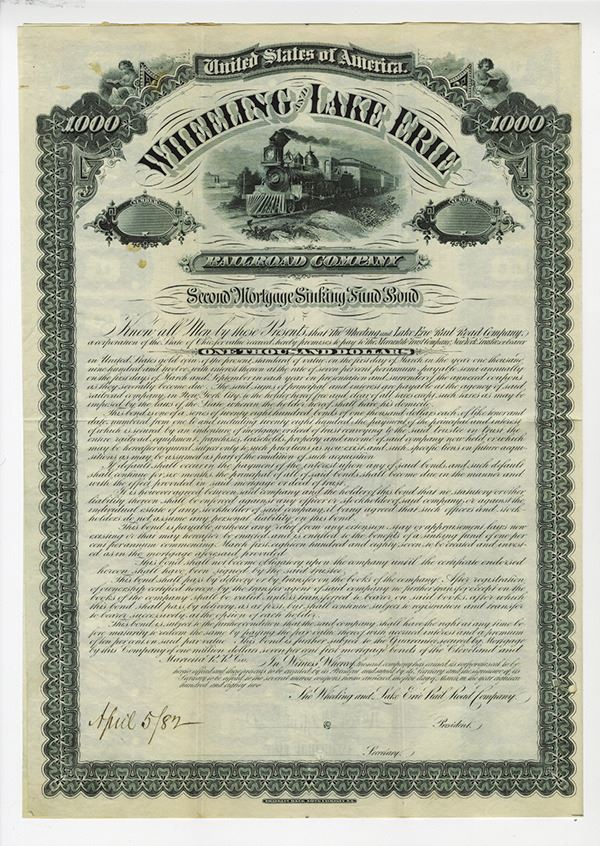 United States of America.
1000 1000
WHEELING AND LAKE ERIE
NUMBER NUMBER
RAILROAD COMPANY
Second Mortgage Sinking Fund Bond
Know all Men by these Presents, that The Wheeling and Lake Erie Rail Road Company,
a corporation of the State of Ohio for value received, hereby promises to pay to The Mercantile Trust Company, New York, Trustee or bearer
ONE THOUSAND DOLLARS
in United States gold coin of the present standard of value on the first day of March in the year one thousand
nine hundred and twelve, with interest thereon at the rate of seven per cent per annum, payable semi annually
on the first days of March and September in each year on presentation and surrender of the annexed coupons
as they severally become due. The said sums of principal and interest are payable at the agency of said
railroad company, in New York City, to the holder hereof free and clear of all taxes except such taxes as may be
imposed by the State wherein the holder hereof has his domicile.
This bond is one of a series of twenty eight hundred bonds of one thousand dollars each, of like tenor and
date, numbered from one to and including twenty eight hundred, the payment of the principal and interest
of which is secured by an indenture of mortgage or deed of trust conveying to the said Trustee in trust the
entire railroad equipment, franchises, leaseholds, property and income of said company now held or which
may be hereafter acquired, subject only to such prior liens as now exist and such specific liens on future acqui-
sitions as may be assumed as part of the condition of such acquisition.
If default shall occur in the payment of the interest upon any of said bonds, and such default
shall continue for six months, the principal of all of said bonds shall become due in the manner and
with the effect provided in said mortgage or deed of trust.
It is however agreed between said company and the holder of this bond that no statutory or other
liability thereon shall be enforced against any officer or stockholder of said company, or against the
individual estate of any stockholder of said company, it being agreed that such officers and stock-
holders do not assume any personal liability on this bond.
This bond is payable without any relief from any extension, stay or appraisement laws now
existing or that may hereafter be enacted, and is entitled to the benefits of a sinking fund of one per
cent per annum commencing March first eighteen hundred and eighty seven to be created and invest-
ed as in the mortgage aforesaid provided.
This bond shall not become obligatory upon the company until the certificate endorsed
hereon shall have been signed by the said Trustee.
This bond shall pass by delivery or by transfer on the books of the company. After registration
of ownership certified hereon by the transfer agent of said company, no further transfer except on the
books of the company shall be valid, unless transferred to bearer on said books, after which
this bond shall pass by delivery, as at first, but shall continue subject to registration and transfer
to bearer successively, at the option of each holder.
This bond is subject to the further condition that the said company shall have the right at any time be-
fore maturity to redeem the same by paying the par value thereof with accrued interest and a premium
of ten per cent on said par value. This bond is further subject to the Guarantee secured by Mortgage
by this Company of one million dollars seven per cent first mortgage bonds of the Cleveland and
Marietta R.R. Co. In Witness Whereof the said company has caused its
and eighty two
The Wheeling and Lake Erie Rail Road Company.
April 5/82
President.
Secretary.
AMERICAN BANK NOTE COMPANY N.Y.